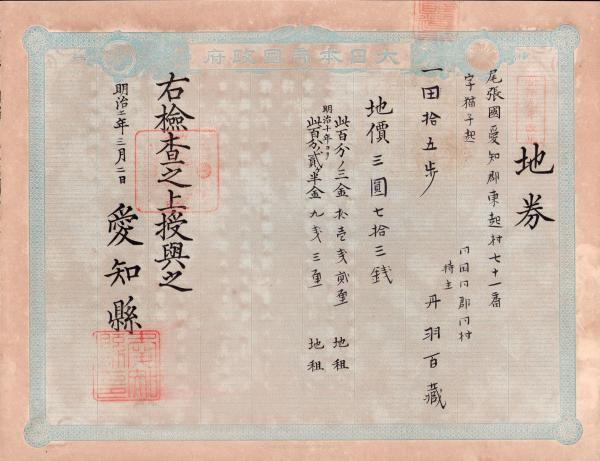 大日本帝国政府
地券
尾張國愛知郡東起村七十一番
字猫子起
同国同郡同村
持主 丹羽百藏
一田拾五歩
地價三圓七拾三銭
此百分ノ三金拾壱銭貳厘 地租
明治十年ヨリ
此百分ノ貳半金九銭三厘 地租
右檢査之上授與之
明治十二年三月二日
愛知縣